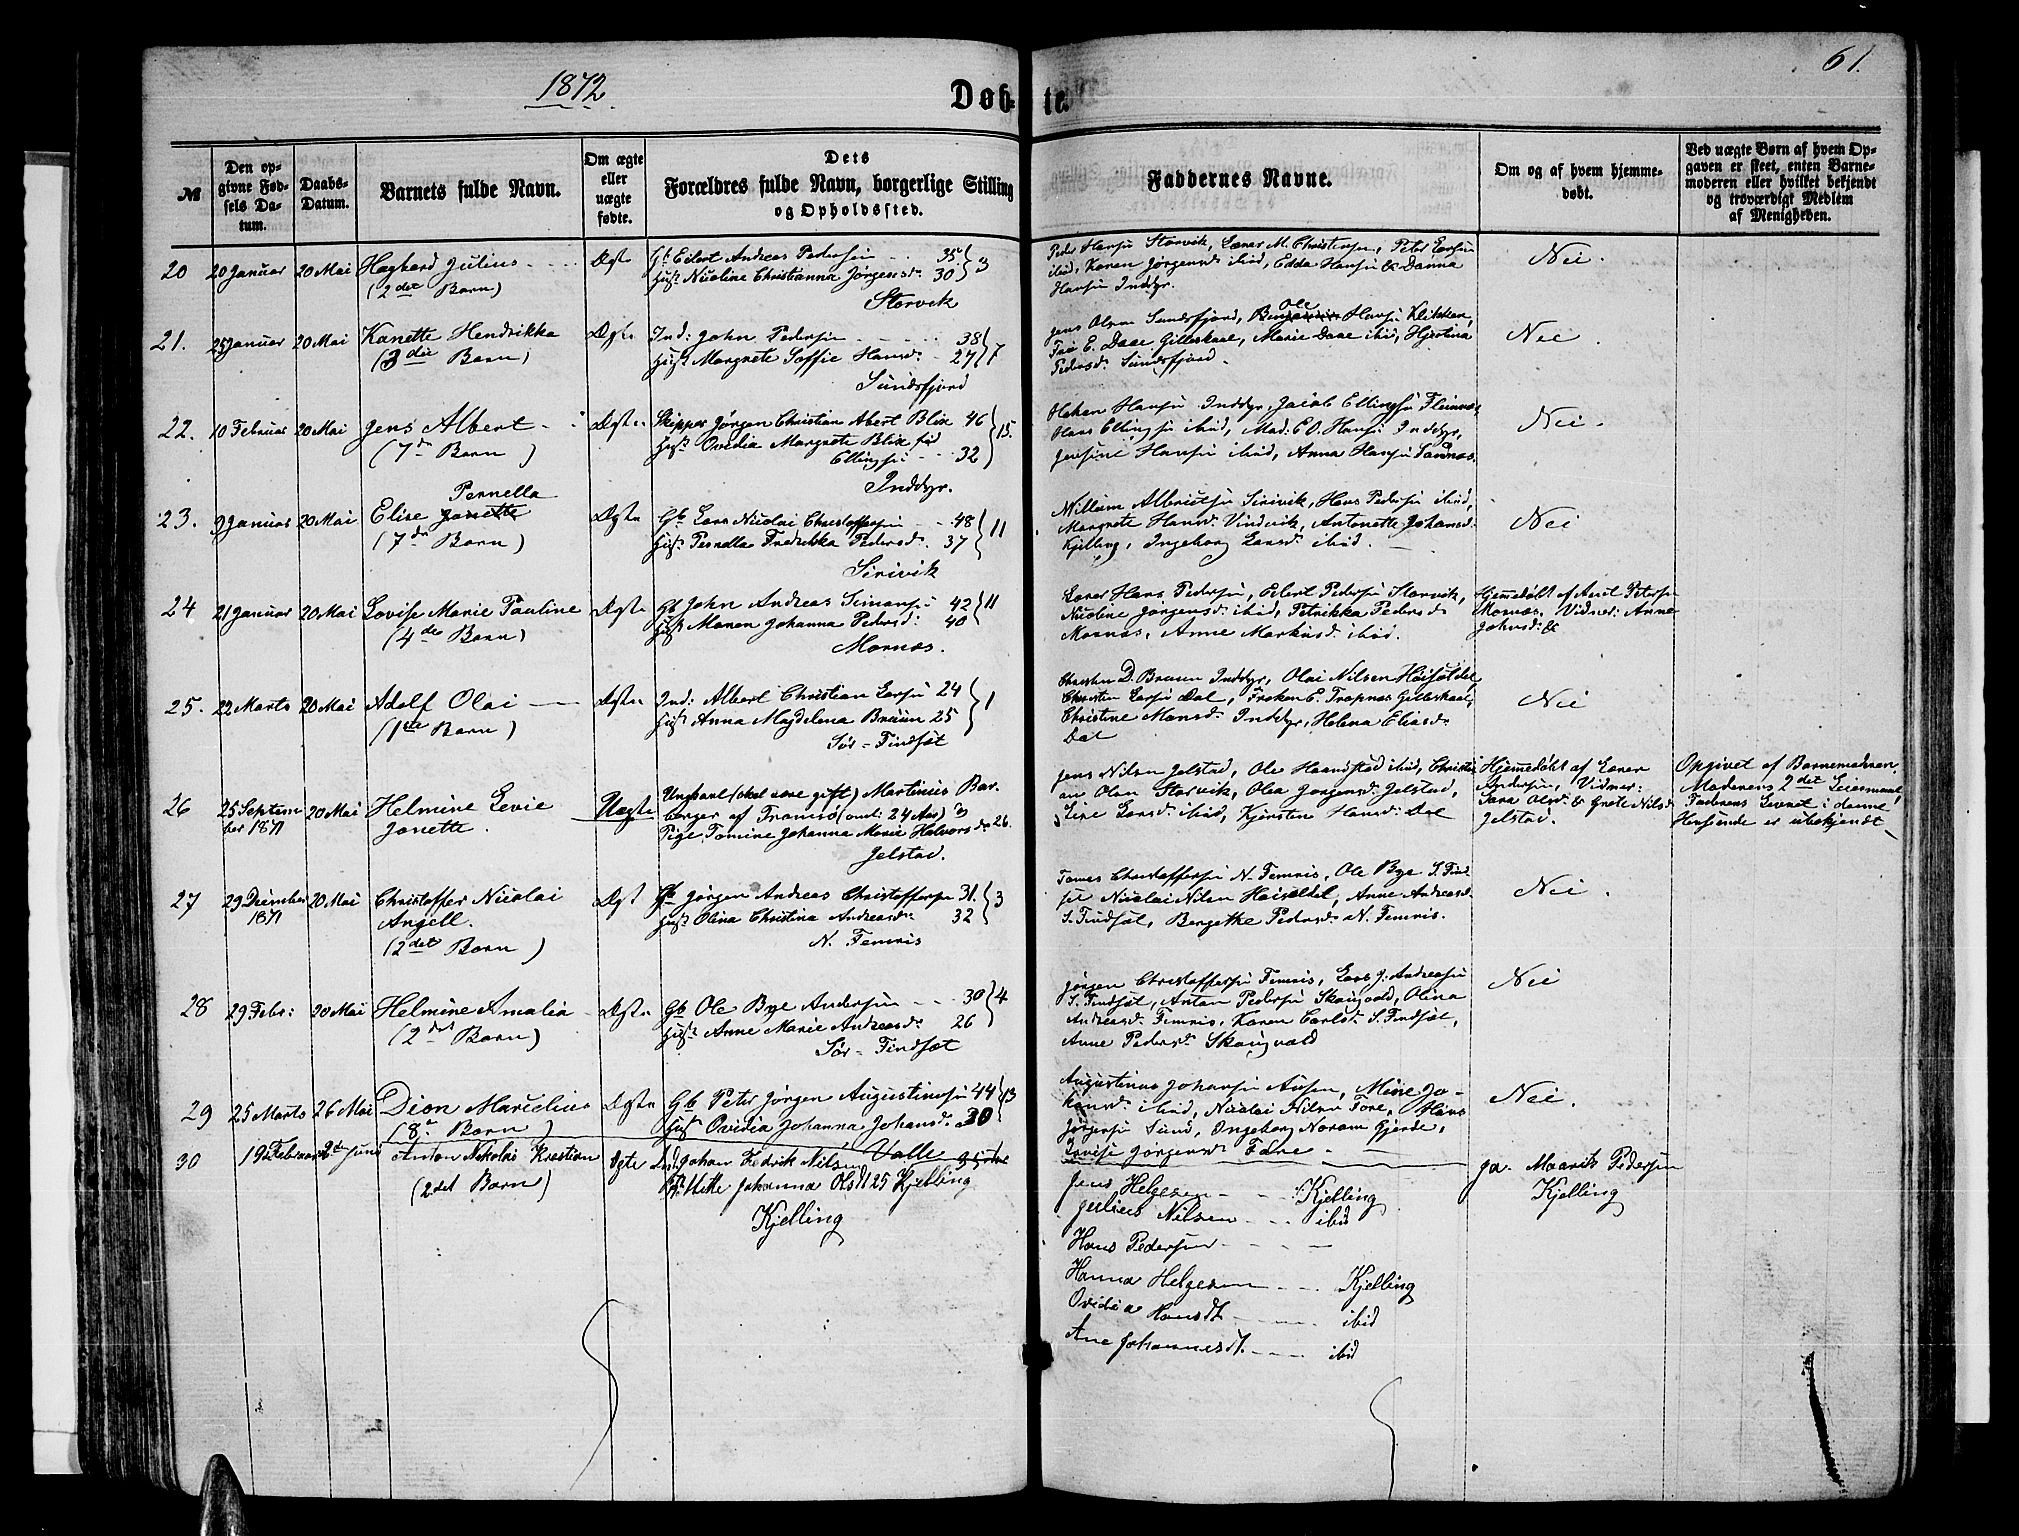 1872
Døb-
te.
61.
№
Den op-
givne Fød-
sels Da-
tum.
Daabs-
Datum.
Barnets fulde Navn.
Om ægte
eller
uægte
fødte.
Dets
Forældres fulde Navn, borgerlige Stilling
og Opholdssted.
Faddernes Navne.
Om og af hvem hjemme-
døbt.
Ved uægte Børn af hvem Op-
gaven er skeet, enten Barne-
moderen eller hvilket bekjendt
og troværdigt Medlem
af Menigheden.
20
20 Januar
20 Mai
Hagbard Julius
(2det Barn)
Ægte
Gb. Eilert Andreas Pedersen 35
Hust. Nicoline Christianna Jørgensd. 30 } 3
Storvik
Peder Hansen Storvik, Læner M. Christensen, Peter Larsen
ibid, Karen Jørgensd. ibid, Edda Hansen & Danna
Hansen Inddyr.
Nei.
21.
25 Januar
20 Mai
Kanette Hendrikka
(3die Barn)
Ægte
Ind: John Pedersen 38
Hust. Margrete Soffie Hansd. 27 } 7
Sundsfjord
Jens Olsen Sundsfjord, Ole Hansen Klikken,
Frk. E. Daae Gilleskaal, Marie Daae ibid, Hjertina
Pedersd. Sundsfjord.
Nei.
22.
10 Februar
20 Mai
Jens Albert
(7de Barn)
Ægte
Skipper Jørgen Christian Abert Blix 46
Hust. Ovidia Margrete Blix fød
Ellingsen 32 } 15.
Inddyr.
Haken Hansen Inddyr, Jacob Ellingsen Fleinvæ,
Claus Ellingsen ibid, Mad. E O. Hansen Inddyr,
Jensine Hansen ibid, Anna Hansen Sannæs.
Nei.
23.
9 Januar
20 Mai
Pernella
Elise Janette
(7de Barn)
Ægte
Gb. Lars Nicolai Christoffersen 48
Hust. Pernella Fredrikka Pedersd. 37 } 11
Sirivik
Willum Albrictsen Sirivik, Hans Pedersen ibid,
Margrete Hansd. Vindvik, Antonette Johansd.
Kjelling, Ingeborg Larsd. ibid
Nei
24
21 Januar
20 Mai
Lovise Marie Pauline
(4de Barn)
Ægte
Gb. John Andreas Simonsen 42
Hust. Maren Johanna Pedersd. 40 } 11
Mornæs.
Læner Hans Pedersen, Eilert Pedersen Storvik,
Nicoline Jørgensd. ibid, Petrikka Pedersd.
Mornæs, Anne Markusd. ibid.
Hjemedøbt af Axel Petersen
Mornæs. Vidner: Anne
Johnsd. &
25.
22 Marts
20 Mai
Adolf Olai
(1ste Barn)
Ægte
Ind: Albert Christian Larsen 24
Hust Anna Magdelena Bruun 25 } 1
Sør-Findset
Christen D. Bruun Inddyr, Olai Nilsen Høisøldel,
Christen Larsen Dal, Frøken E. Trapnæs Gilleskaal,
Christine Mansd. Inddyr, Helena Eliasd.
Dal
Nei
26
25 Septem
ber 1871
20 Mai
Helmine Levie
Janette.
Uægte
Ungkarl (skal være gift) Martinius Bar.
borger af Tromsø (omt. 24 Aar) og
Pige Tomine Johanna Marie Halvorsdr 26.
Jelstad.
Jens Nilsen Jelstad, Ole Haandstad ibid, Christi
an Olsen Storvik, Olea Jørgensd. Jelstad,
Sire Larsd. ibid, Kjersten Hansd. Dal
Hjemedøbt af Læner
Andersen, Vidner:
Sara Olsd. & Grete Nilsd.
Jelstad.
Opgivet af Barnemoderen,
Moderens 2det Leiermaal,
Faderens Levnet i denne
Henseende er ubekjendt
27
29 December
1871
20 Mai
Christoffer Nicolai
Angell.
(2det Barn)
Ægt
Gb Jørgen Andreas Christoffersen 31.
Hust. Olina Christina Andreasdr. 32 } 3
N. Femris
Tomas Christoffersen N. Femris, Ole Bye S. Find
set Nicolai Nilsen Høisøldel, Anne Andreasd.
S. Findset, Bergethe Pedersd. N. Femris.
Nei.
28
29 Febr:
20 Mai
Helmine Amalia
(2det Barn)
Ægte
Gb. Ole Bye Andersen 30
Hust. Anne Marie Andreasd. 26 } 4
Sør-Findset
Jørgen Christoffersen Femris, Lars J. Andreasen
S. Findset, Antan Pedersen Skaugvold, Olina
Andreasd. Femris, Karen Carlsd. S. Findset,
Anne Pedersd. Skaugvald
Nei
29
25 Marts
26 Mai
Dion Marcelius
(8de Barn)
Ægte
Gb Peter Jørgen Augustinsen 44
Hust Ovidia Johanna Johansd. 30 } 13
Valle
Augustinus Johansen Ausen, Mine Jo-
hansd. ibid, Nicolai Nilsen Fore, Hans
Jørgensen Sund, Ongeborg Noram Gjerde,
Lovise Jørgensd. Fore
Nei.
30
19 Februar
2den Juni
Anton Nikolai Kristian
(2det Barn)
Ægte
Ind Johan Fedrik Nilsen
Hst. Mette Johanna Olsdt 25 Kjelling
Kjelling
Jens Helgesen Kjelling
Julius Nilsen ibid
Hans Pedersen
Hanna Helgesen Kjelling
Ovidia Hansdt. ibid
Ane Johannesdt. ibid
Ja. Maarits Pedersen
Kjelling